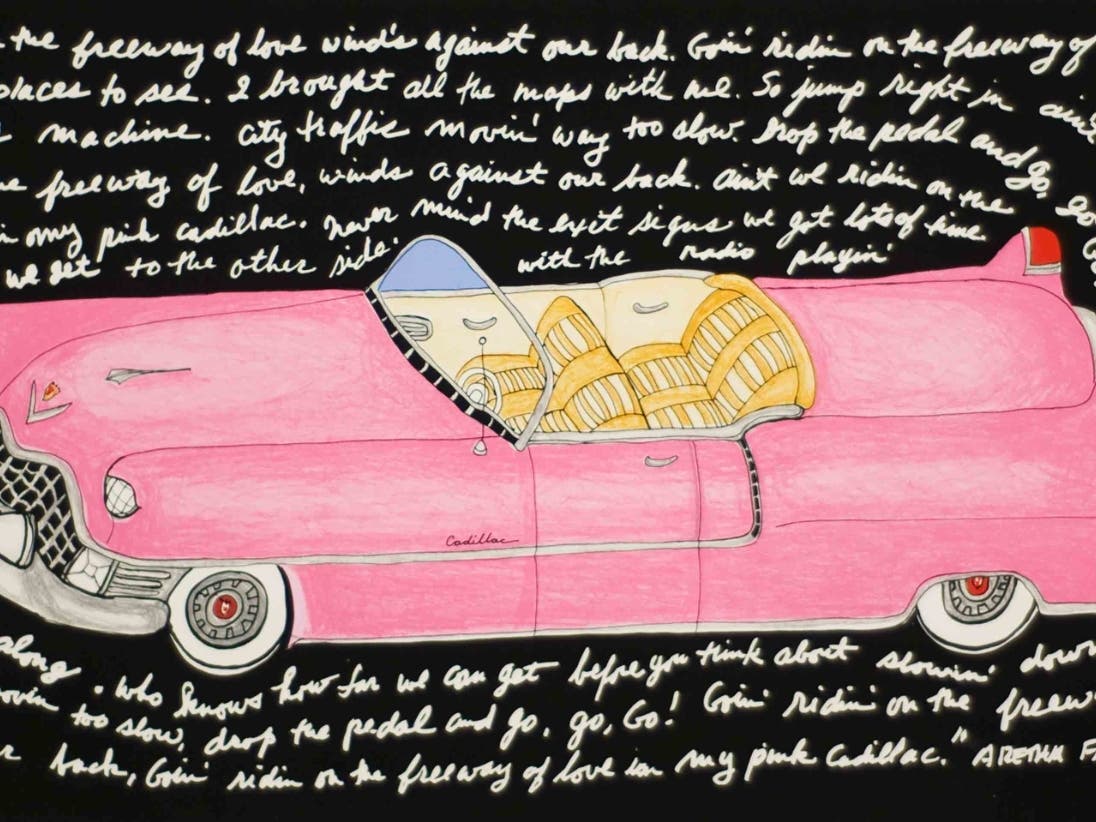 the freeway of love wind's against our back. Goin' ridin on the freeway of
places to see. I brought all the maps with me. So jump right in ain't
machine. City traffic movin' way too slow. Drop the pedal and go.
freeway of love, winds against our back. ain't we ridin on the
my pink cadillac. Never mind the exit signs we got lots of time.
we get to the other side. with the radio playin'
Cadillac
along. who knows how far we can get before you think about slowin' down
too slow, drop the pedal and go, go, Go! Goin' ridin' on the freew
back, Goin' ridin on the freeway of love in my pink Cadillac." ARETHA